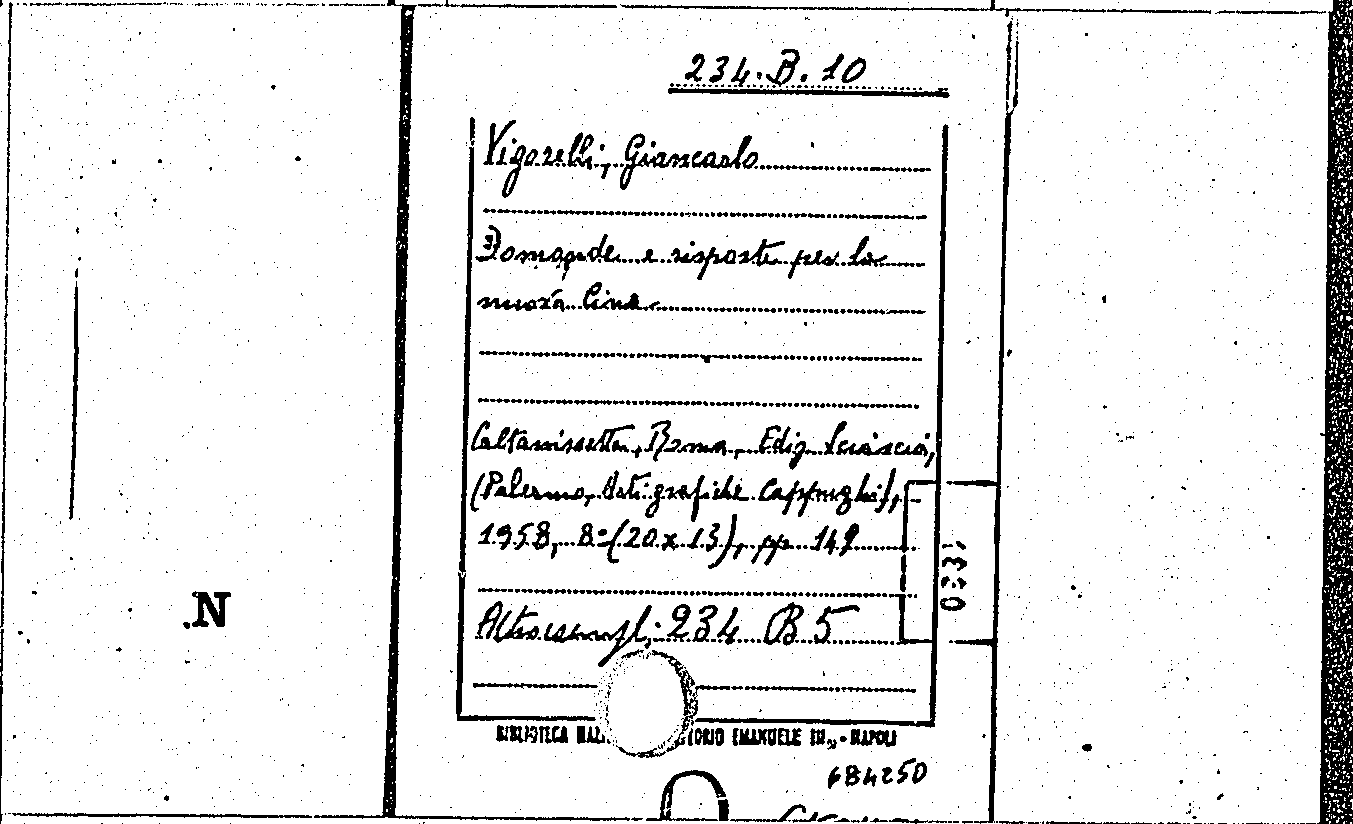 234.B.10
Vigorelli, Giancarlo
Domande e risposte per la
nuova Cina
Caltanissetta, Roma, Ediz. Sciascia,
(Palermo, Arti grafiche Cappugli),
1958, 8°(20x13), pp. 149
0331
.N
Altro esempl: 234 B 5
BIBLIOTECA NAZ ORIO EMANUELE III - NAPOLI
684250